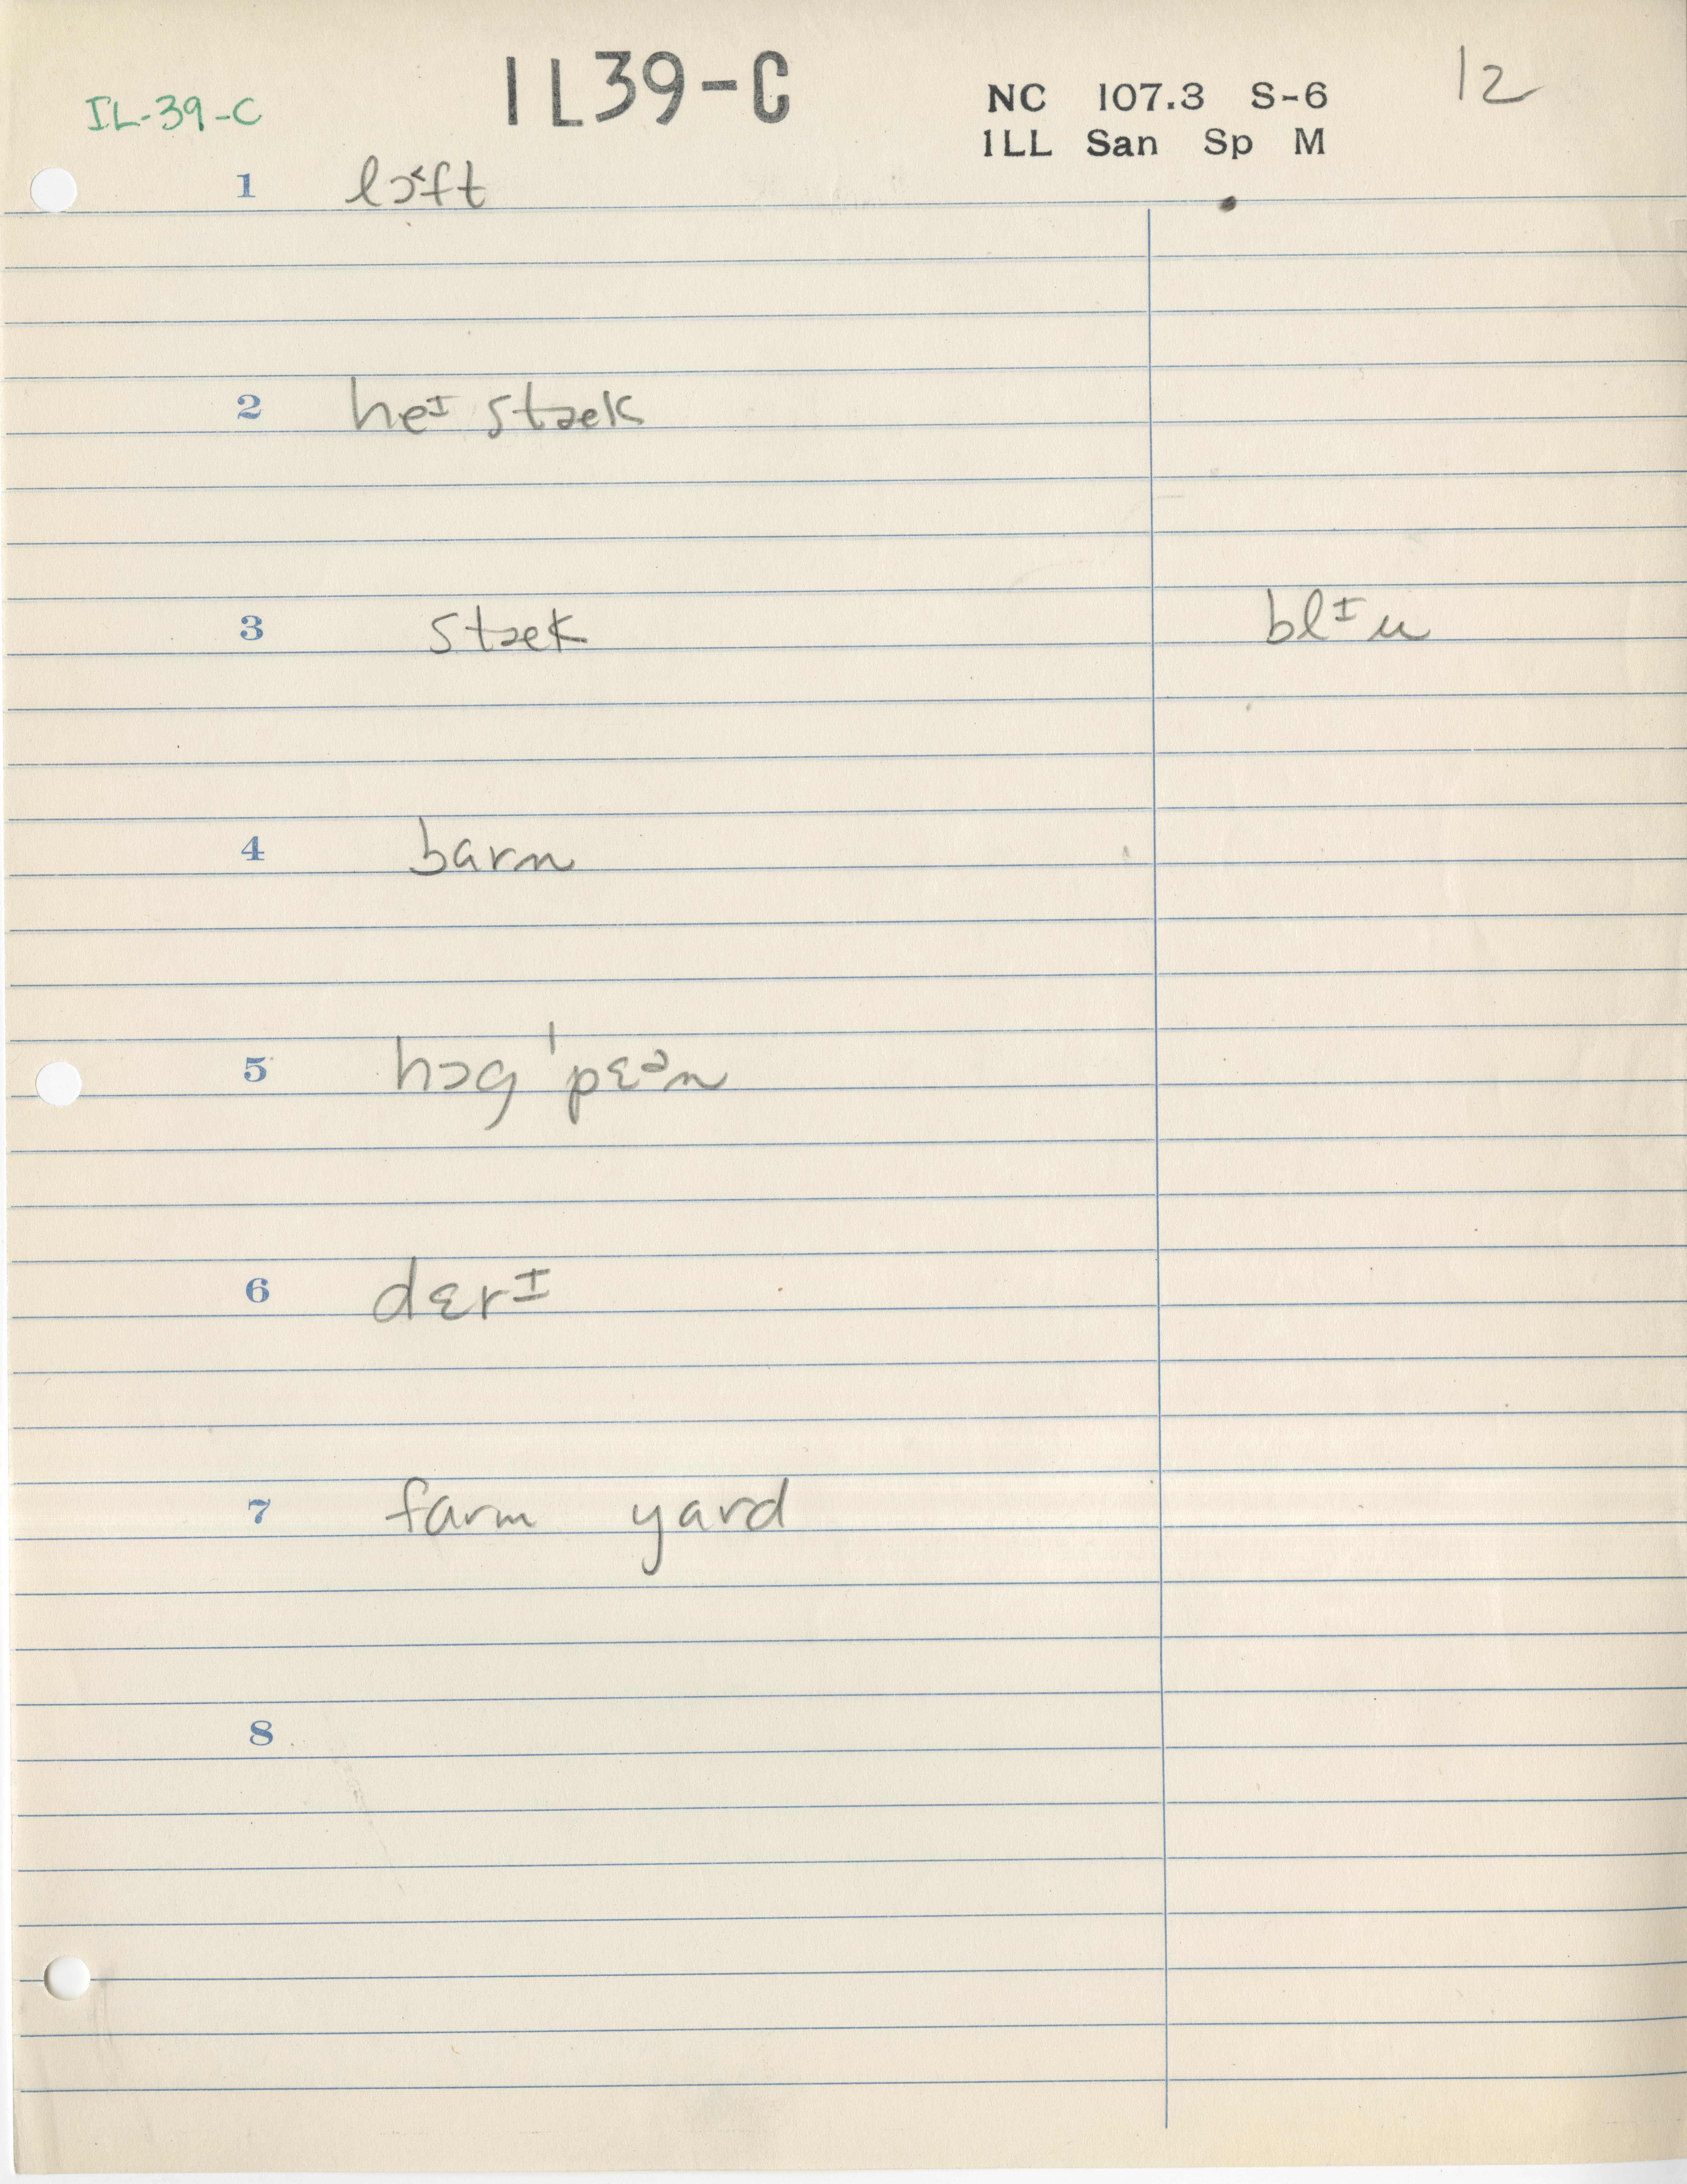 IL-39-C
IL39-C
NC 107.3 S-6
ILL San Sp M
12
1 lɔ˂ft
2 heᶦ stæk
3 stæk
blᶦu
4 barn
5 hɔg ˈpɛᵊn
6 dɛrᶦ
7 farm yard
8